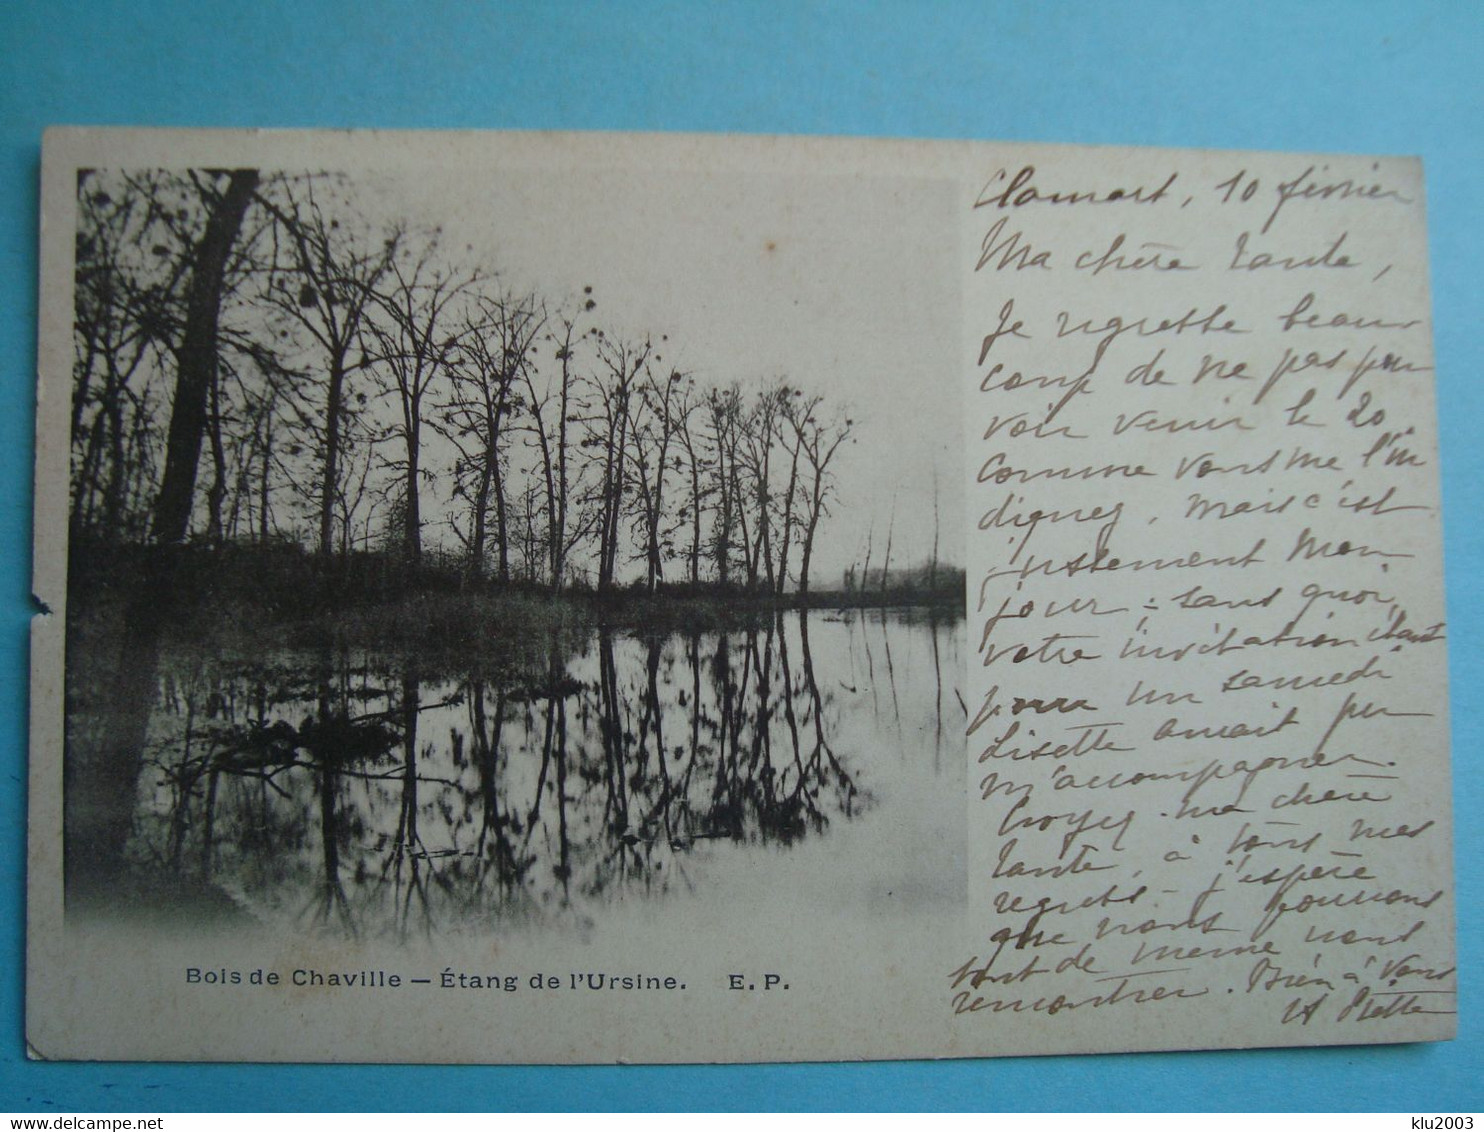 Clamart, 10 février
Ma chère tante,
Je regrette beau
coup de ne pas pou
voir venir le 20,
comme vous me l'in
diquez, mais c'est
justement mon
jour ; sans quoi,
votre invitation étant
pour un samedi
Lisette aurait pu
m'accompagner.
Croyez ma chère
tante, à tous mes
regrets - j'espère
que nous pourrons
tout de même nous
rencontrer. Bien à vous
Bois de Chaville — Étang de l'Ursine. E. P.
delcampe.net
klu2003